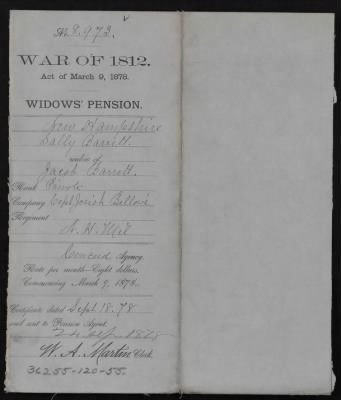 8,973.
WAR OF 1812.
Act of March 9, 1878.
WIDOWS' PENSION.
New Hampshire
Sally Barrett.
widow of
Jacob Barrett.
Rank Private
Company Capt Josiah Bellows
Regiment
N. H. Mil
Concord Agency.
Rate per month—Eight dollars.
Commencing March 9, 1878.
Certificate dated Sept 18. 78
and sent to Pension Agent.
24 Sep. 1878
W. A. Martin Clerk.
36255-120-55.